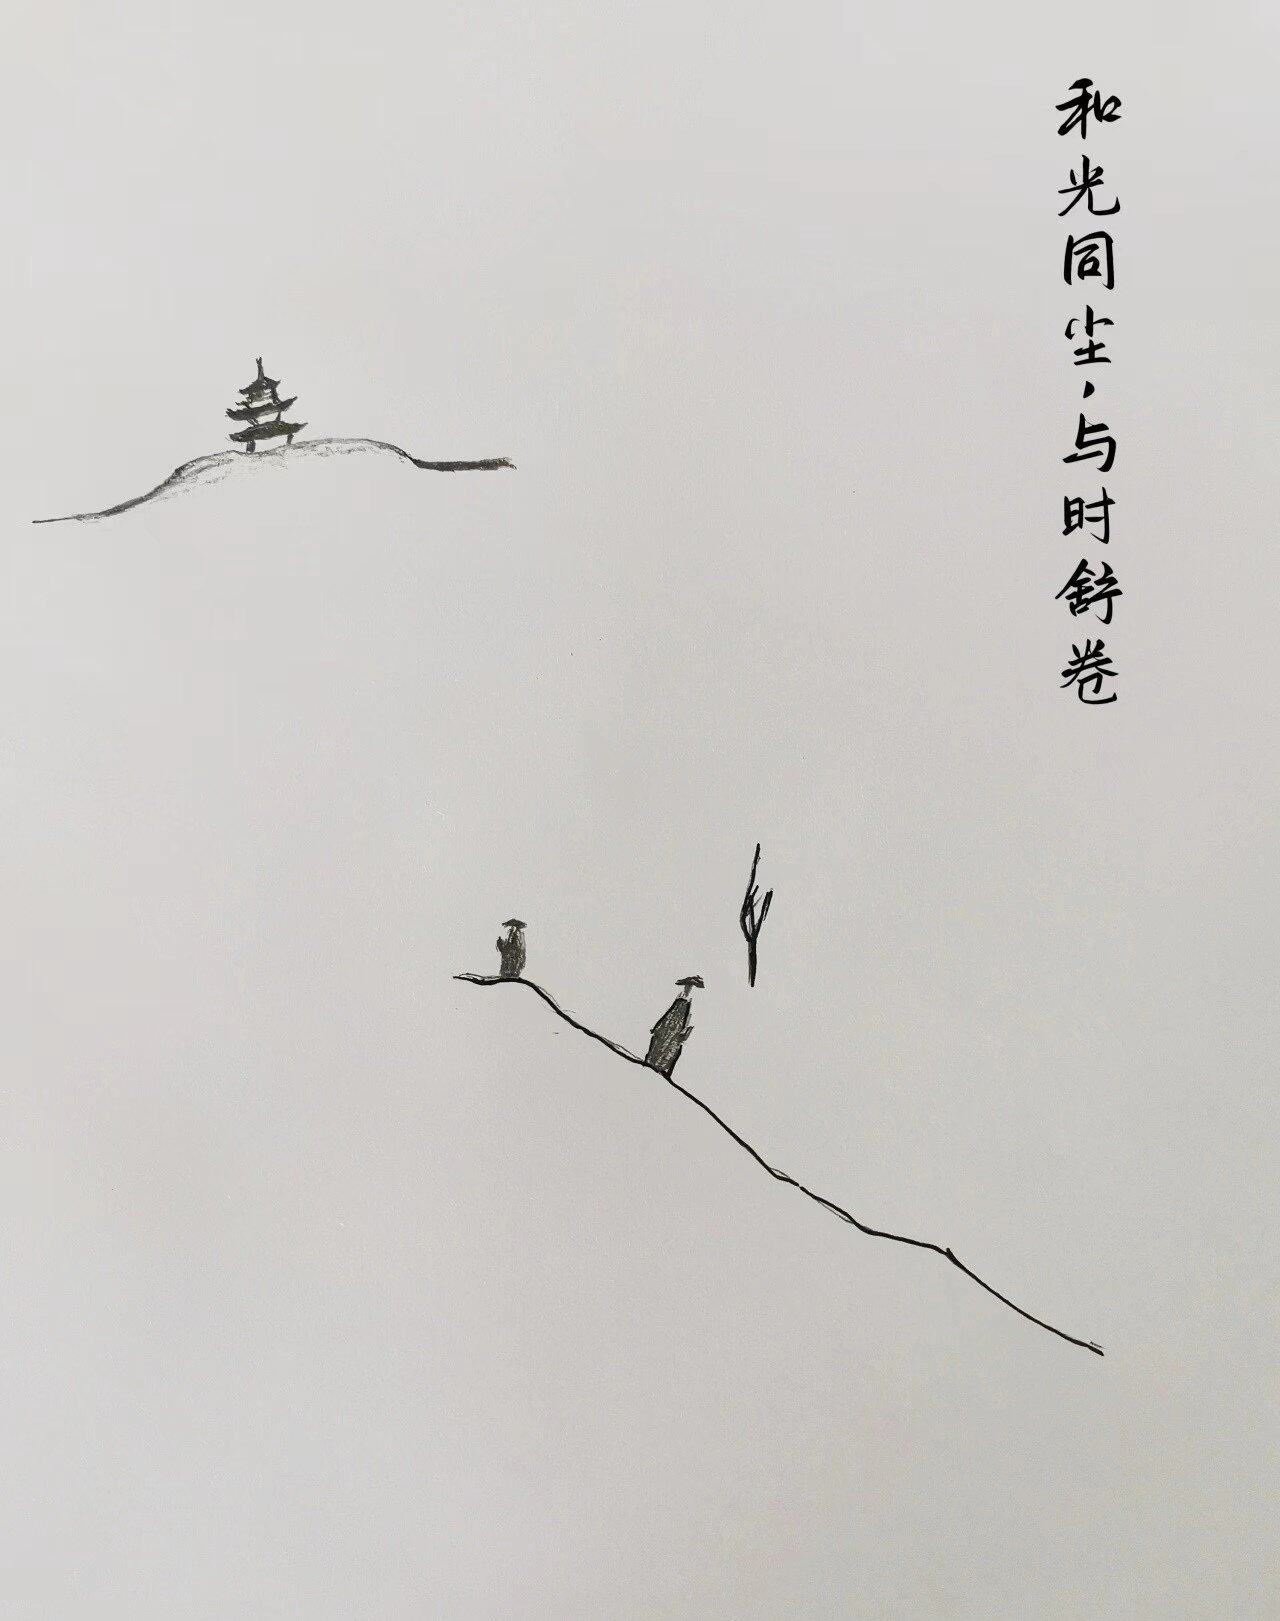 和光同尘，与时舒卷